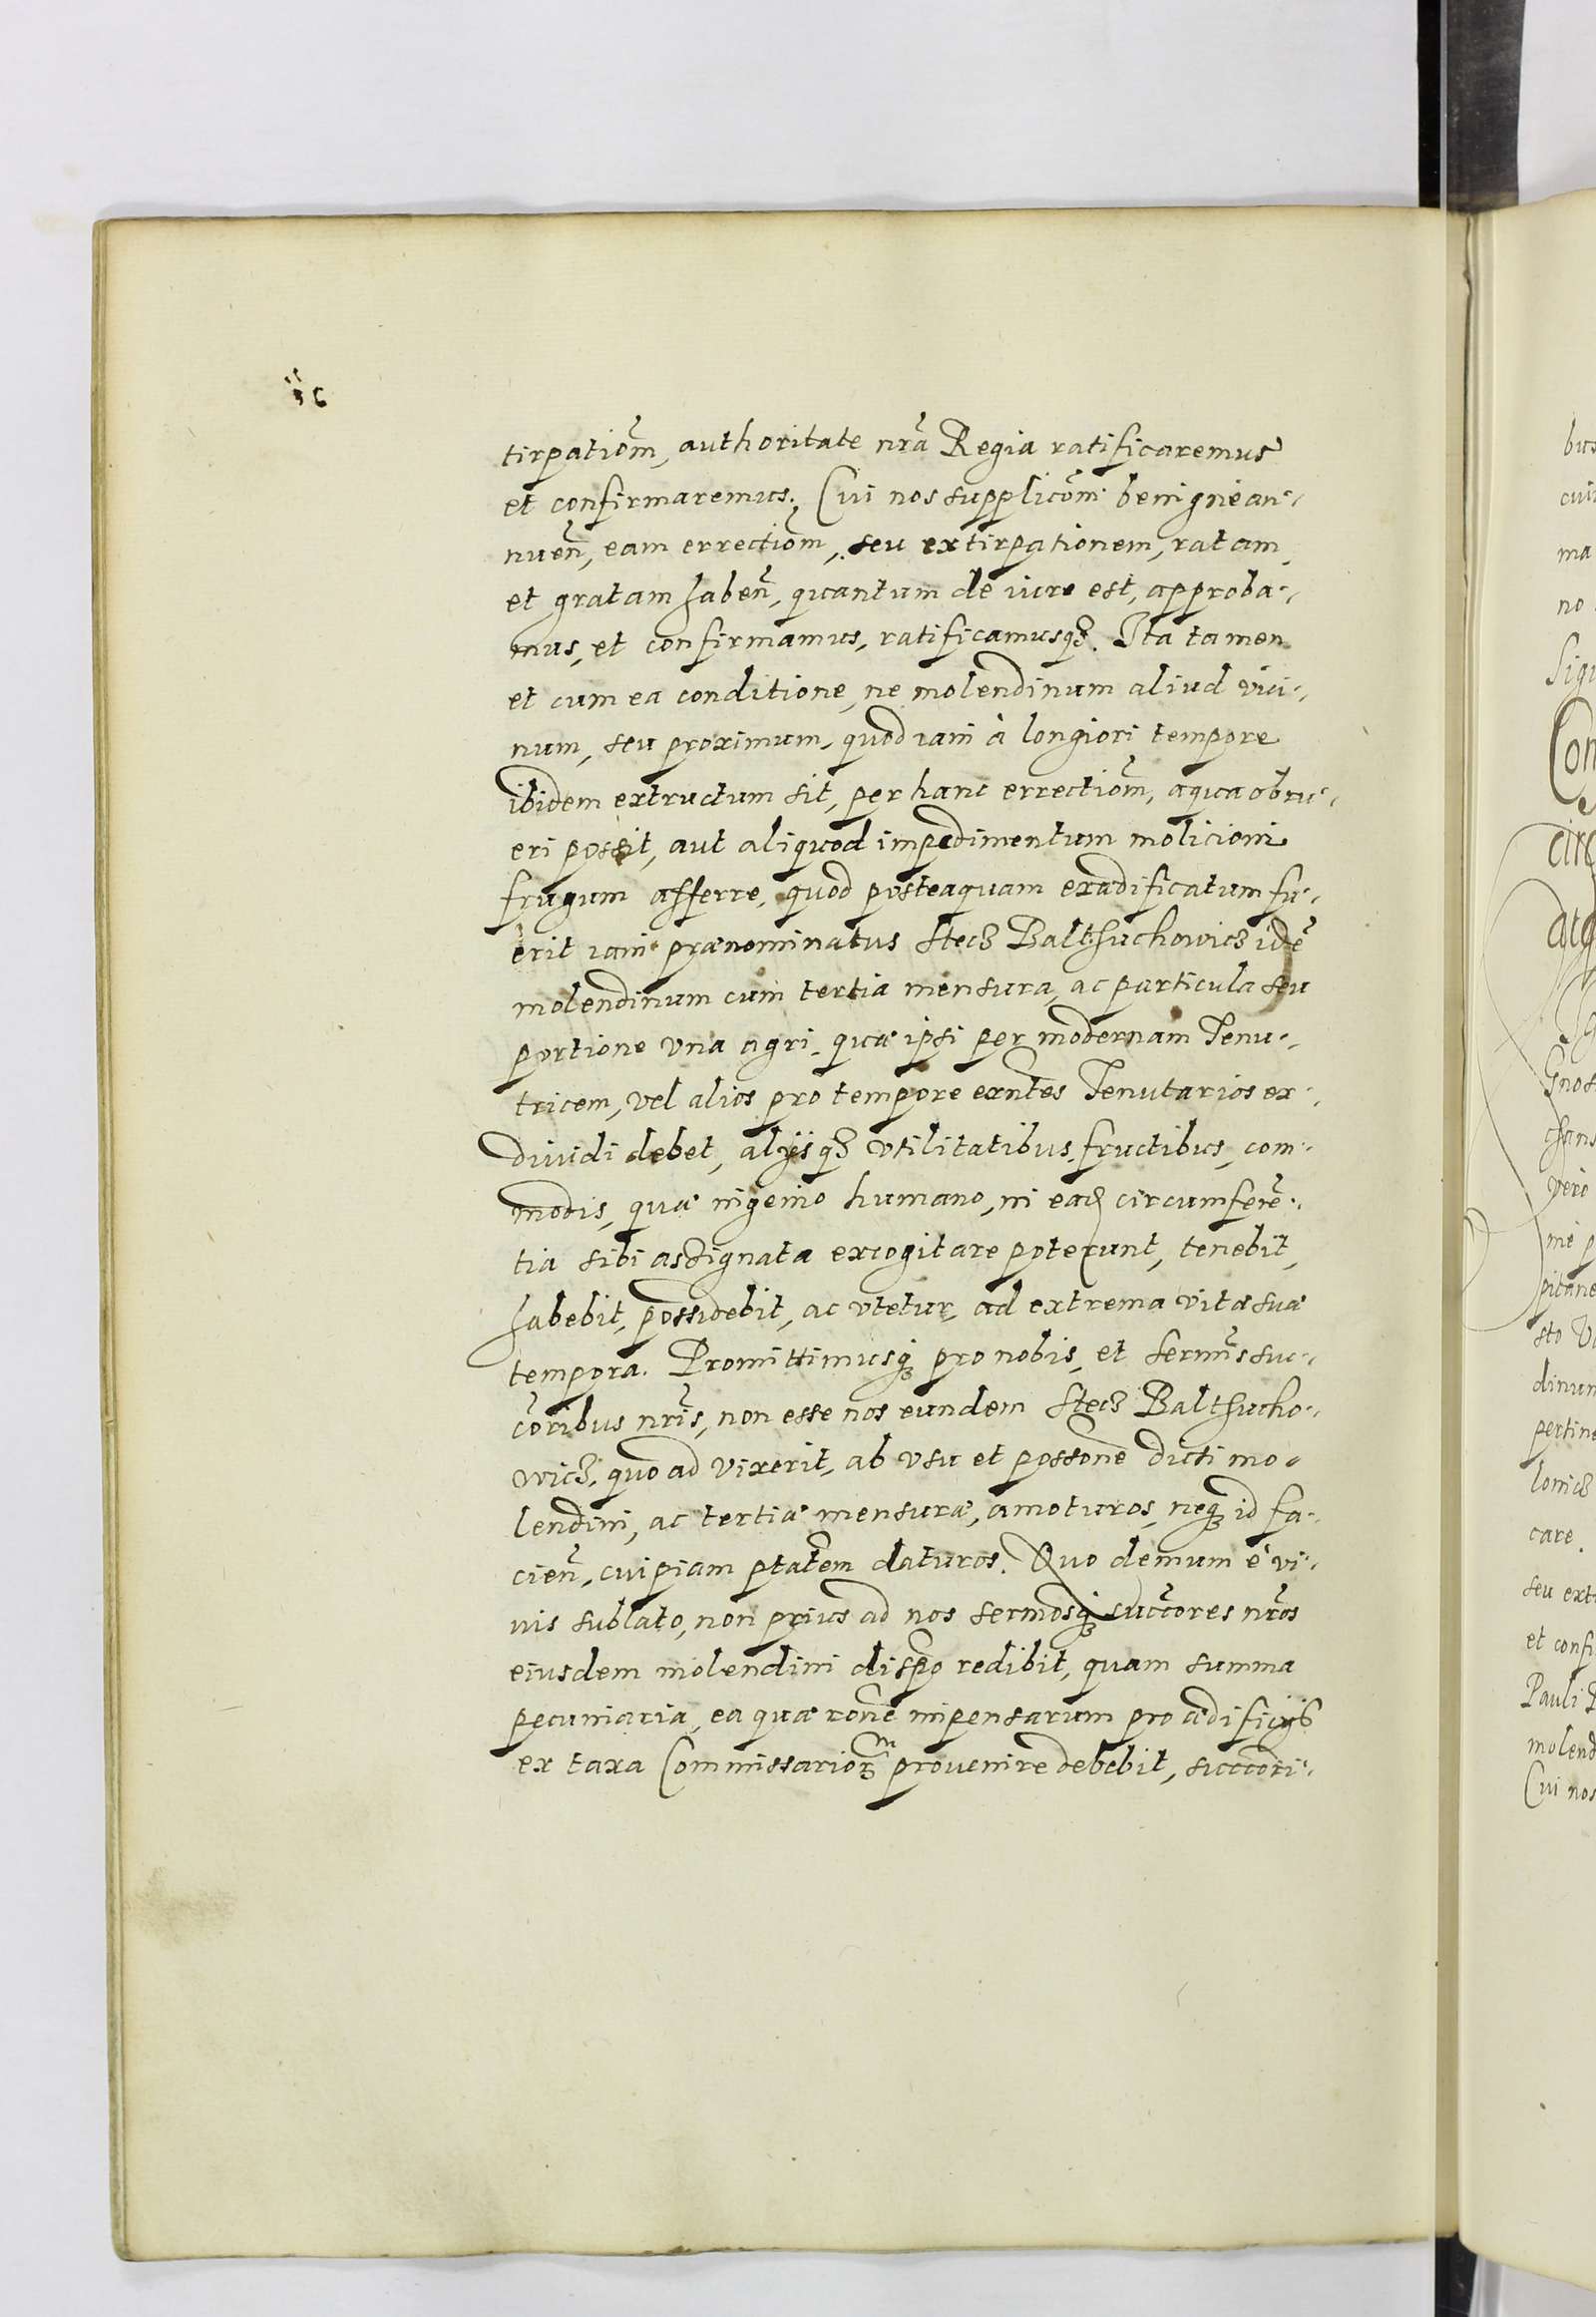 tirpatiom̃, authoritate nrã Regia ratificaremus
et confirmaremus. Cui nos supplicõm benignè an-
nueñ, eam errectiom̃, seu extirpationem, ratam
et gratam habeñ, quantum de iure est, approba-
mus, et confirmamus, ratificamusqꝫ. Ita tamen
et cum ea conditione, ne molendinum aliud vici-
num, seu proximum, quod iam à longiori tempore
ibidem extructum sit, per hanc errectiom̃, aqua obru-
eri possit, aut aliquod impedimentum molicioni
frugum afferre, quod posteaquam exædificatum fu-
erit iam prænominatus Stecz Balthuchowicz idẽ
molendinum cum tertia mensura, ac particula seu
portione vna agri, quæ ipsi per modernam Tenu-
tricem, vel alios pro tempore exñtes Tenutarios ex-
diuidi debet, alijsqꝫ vtilitatibus, fructibus, com-
modis, quæ ingenio humano, in ead circumferẽ-
tia sibi assignata excogitare poterunt, tenebit,
habebit, possidebit, ac vtetur, ad extrema vitæ suæ
tempora. Promittimusqꝫ pro nobis, et Sermĩs suc-
cõribus nrĩs, non esse nos eundem Stecz Balthucho-
wicz, quo ad vixerit, ab vsu et possonẽ dicti mo-
lendini, ac tertiæ mensuræ, amoturos, neqꝫ id fa-
cieñ, cuipiam ptãtem daturos. Quo demum è vi-
uis sublato, non prius ad nos sermosqꝫ succc̃ores nrõs
eiusdem molendini dispõ redibit, quam summa
pecuniaria, ea quæ ronẽ impensarum pro ædificijs
ex taxa Commissarioꝝm prouenire debebit, succcõri-
bus
cui
ma
no
Sigi
Con
circ
Gnos
chans
verò
mè p
pitane
sto Vi
dinum
pertine
lonicz
care.
seu exti
et confi
Pauli
molend
Cui nos